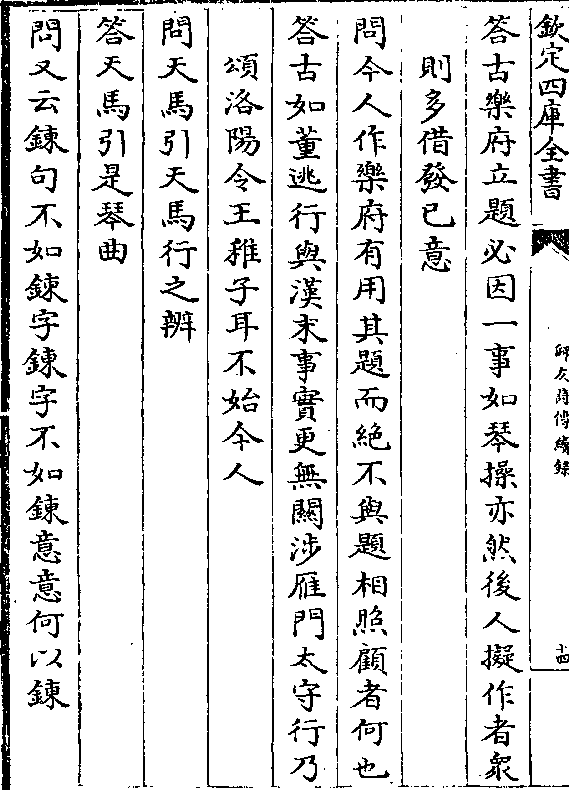 欽定四庫全書
師友詩傳續錄
十四
答古樂府立題必因一事如琴操亦然後人擬作者衆
則多借發已意
問今人作樂府有用其題而絶不與題相照顧者何也
答古如董逃行與漢末事實更無關涉雁門太守行乃
頌洛陽令王稚子耳不始今人
問天馬引天馬行之辨
答天馬引是琴曲
問又云鍊句不如鍊字鍊字不如鍊意意何以鍊